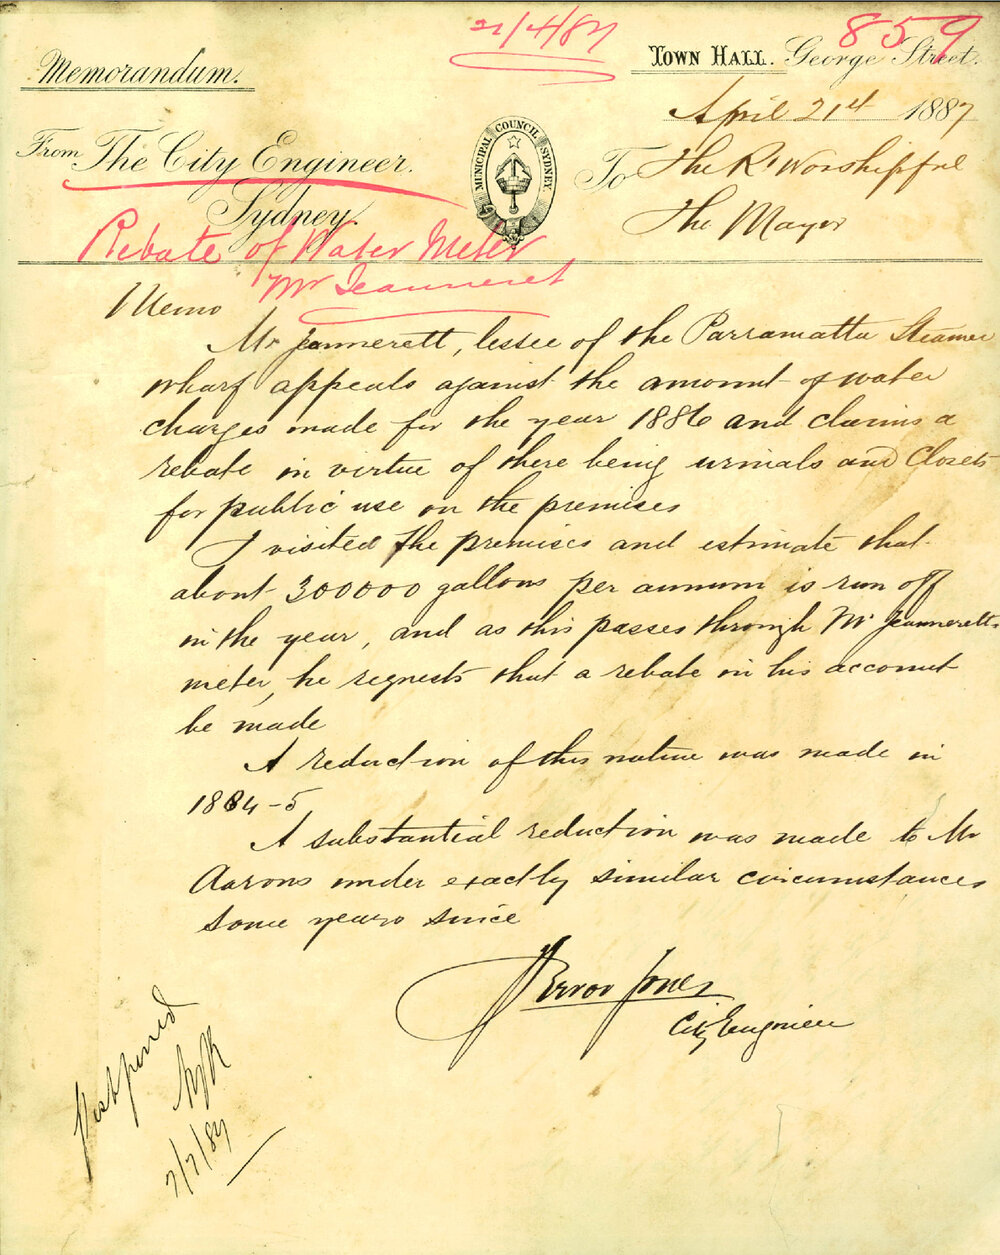 21/4/87
859
Memorandum.
TOWN HALL. George Street.
April 21st 1887
From The City Engineer.
Sydney.
MUNICIPAL COUNCIL SYDNEY
To The Rt Worshipful
The Mayor
Rebate of Water Meter
Mr Jeanneret
Memo
Mr Jeannerett, lessee of the Parramatta Steamer
wharf appeals against the amount of water
charges made for the year 1886 and claims a
rebate in virtue of there being urinals and Closets
for public use on the premises
I visited the premises and estimate that
about 300000 gallons per annum is run off
in the year, and as this passes through Mr Jeannerett's
meter, he requests that a rebate in his account
be made
A reduction of this nature was made in
1884-5
A substantial reduction was made to Mr
Aarons under exactly similar circumstances
some years since
Trevor Jones
City Engineer
Postponed
7/7/87